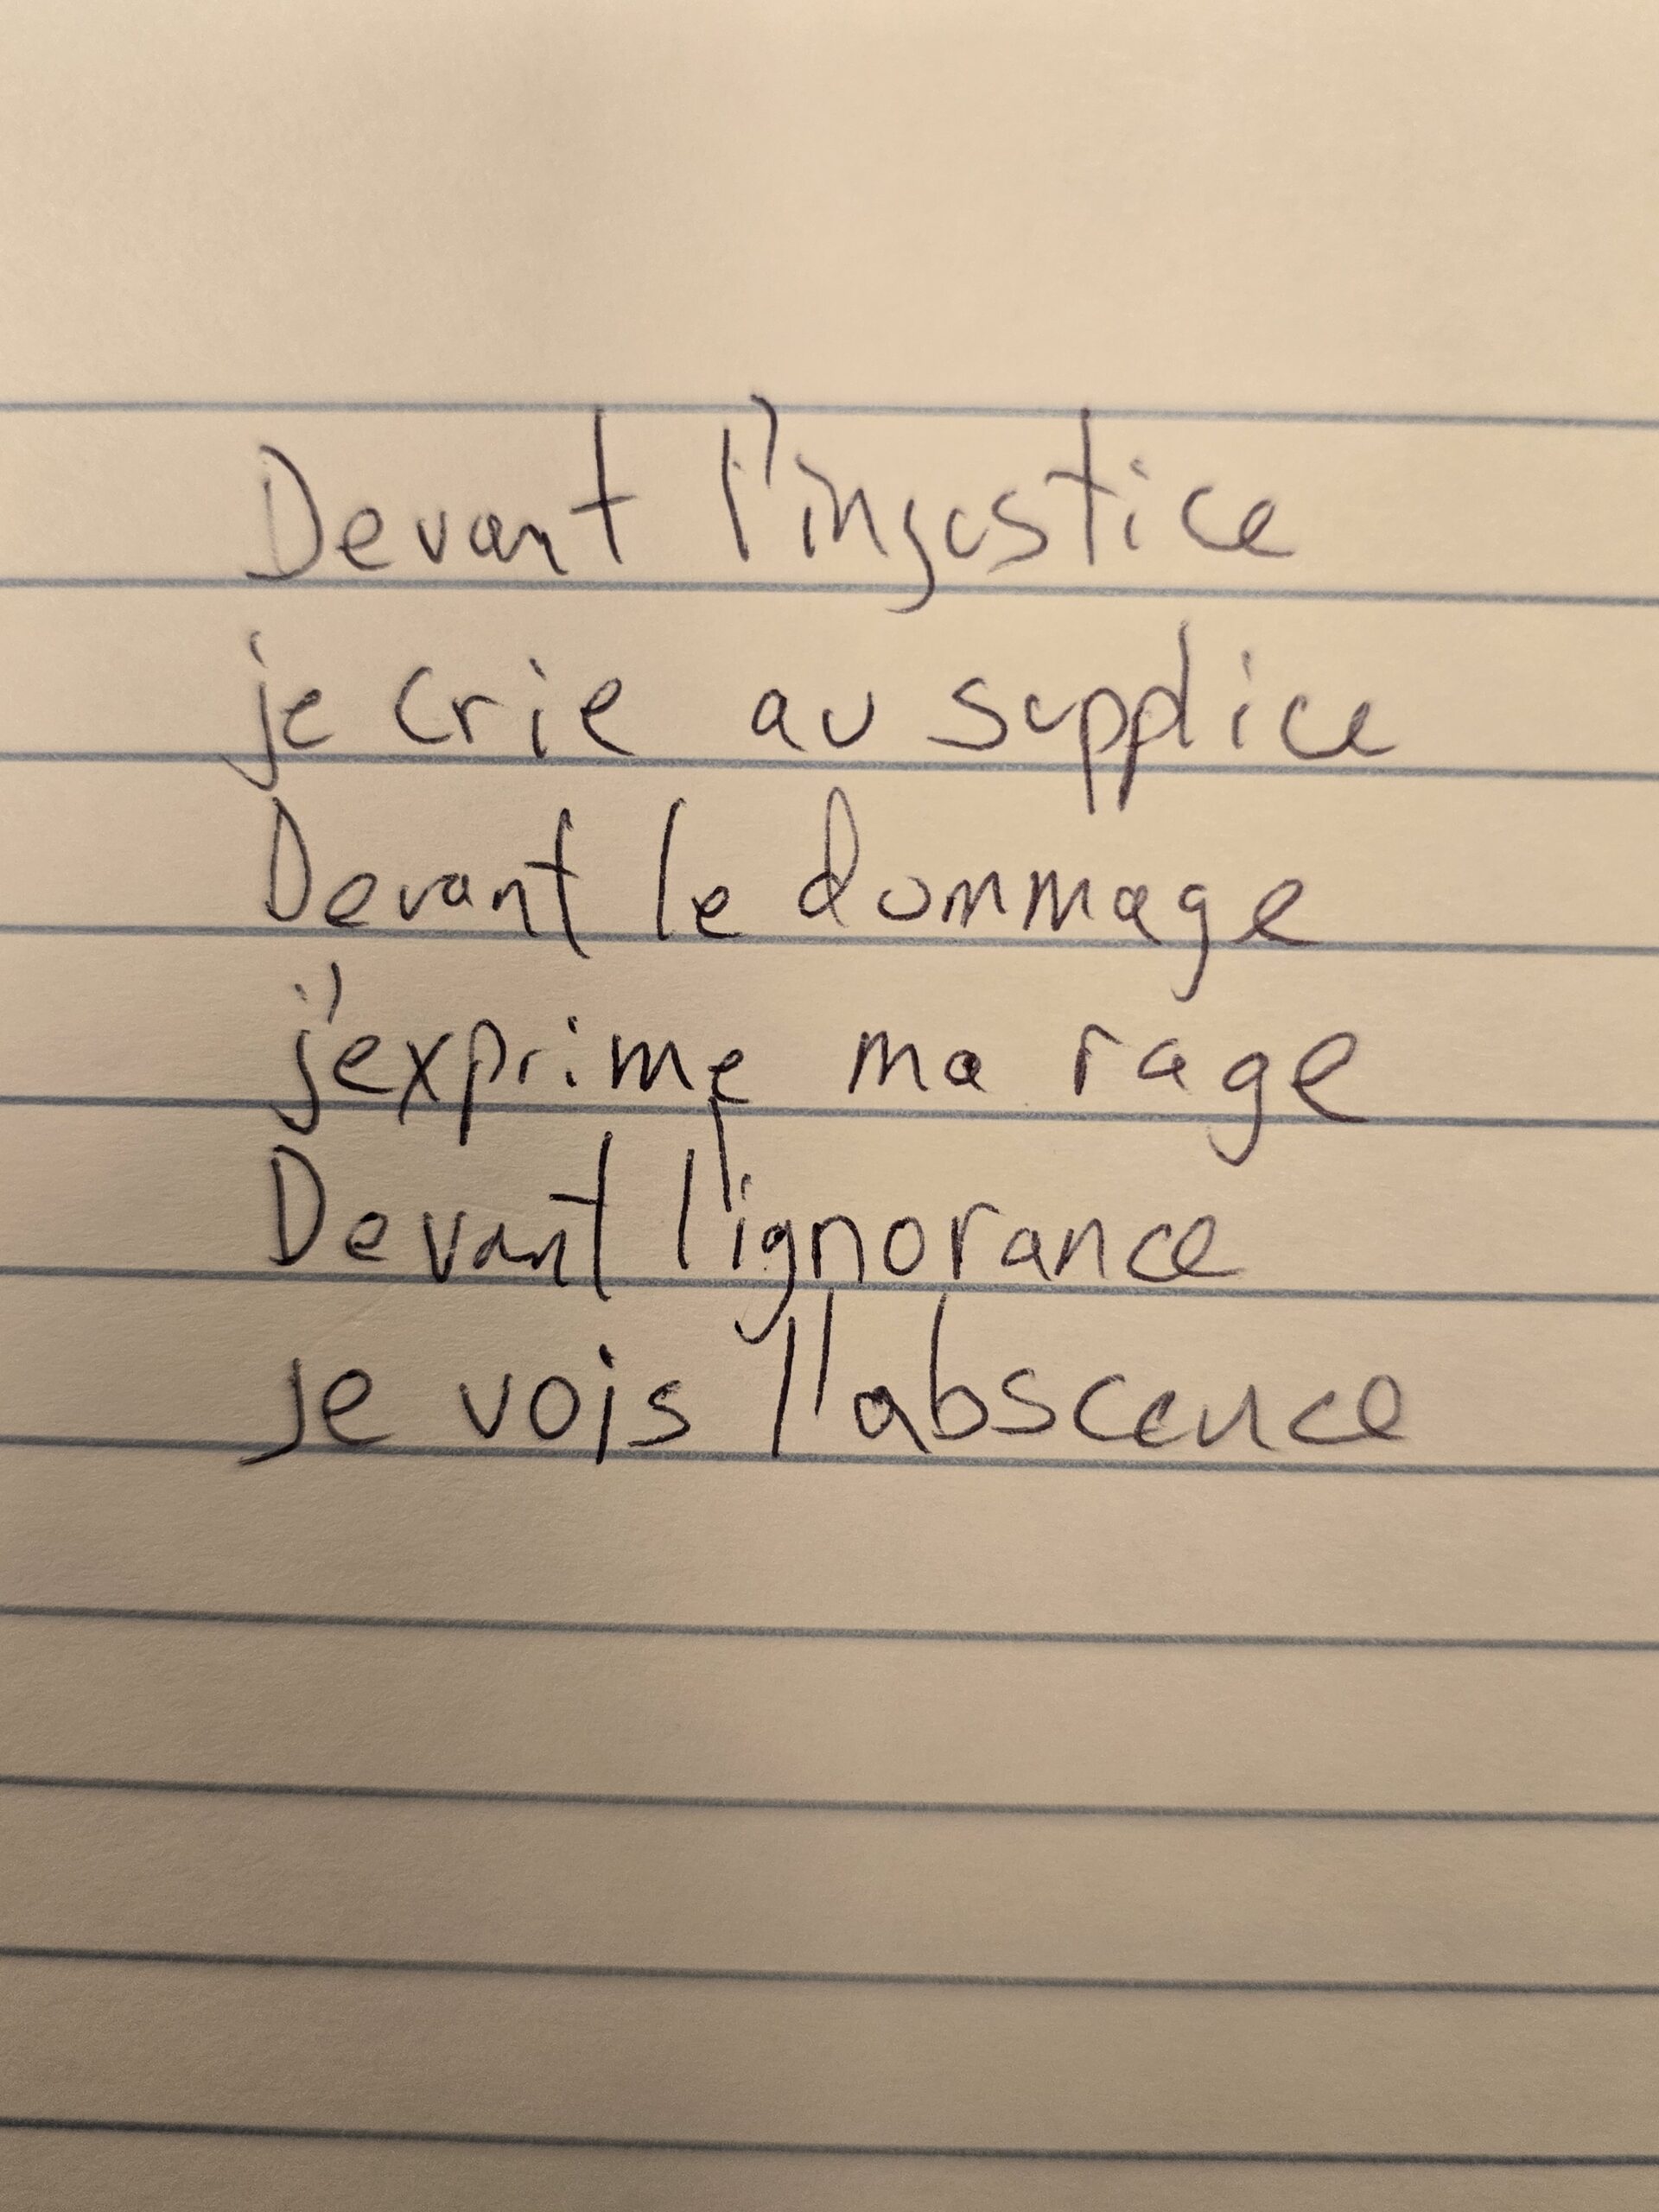 Devant l'injustice
je crie au supplice
Devant le dommage
j'exprime ma rage
Devant l'ignorance
je vois l'abscence